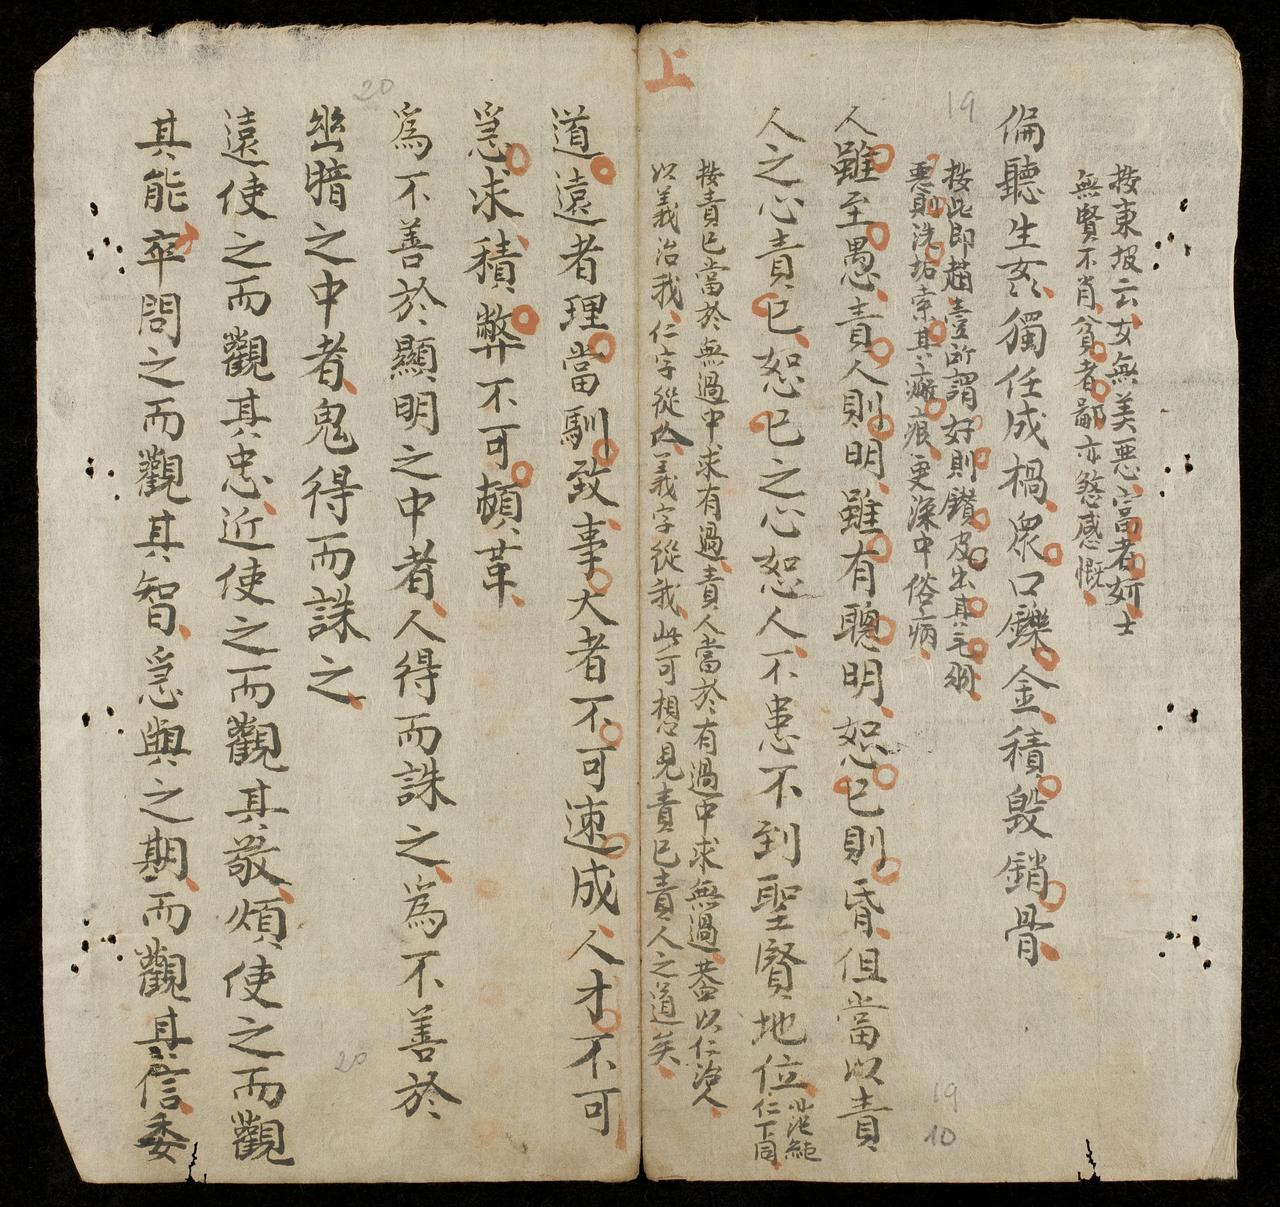 上
按東坡云女無美惡富者妍士
無賢不肖貧者鄙亦慾感慨
偏聽生姦獨任成禍衆口鑠金積毀銷骨
按此即趙壹所謂好則鑽皮出其毛羽
惡則洗垢索其瘢痕更深中俗病
人雖至愚責人則明雖有聰明恕已則昏但當以責
人之心責已恕已之心恕人不患不到聖賢地位
此范純
仁丁同
按責已當於無過中求有過責人當於有過中求無過蓋以仁治人
以義治我仁字從人義字從我此可想見責已責人之道矣
道遠者理當馴致事大者不可速成人才不可
急求積弊不可頓革
爲不善於顯明之中者人得而誅之爲不善於
幽暗之中者鬼得而誅之
遠使之而觀其忠近使之而觀其敬煩使之而觀
其能卒問之而觀其智急與之期而觀其信委
19
20
20
19
10